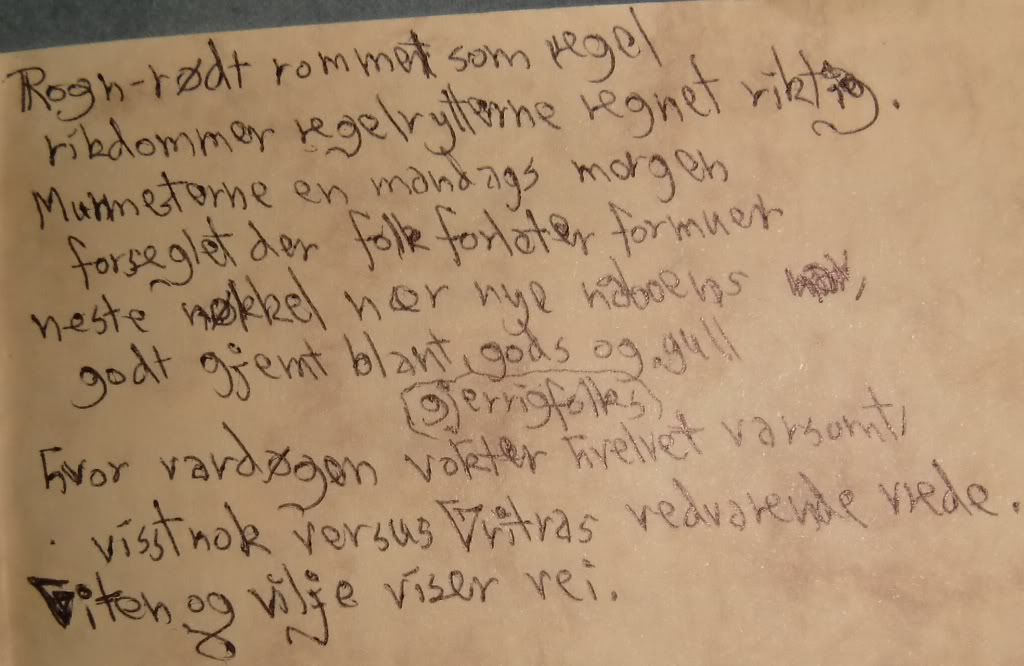 Rogn-rødt rommet som regel
rikdommer regelrytterne regnet riktig.
Murmesterne en mandags morgen
forseglet der folk forlater formuer
neste nøkkel nær nye naboens
godt gjemt blant gods og gull
gjerrigfolks
hvor vardøgen vokter hvelvet varsomt,
visstnok versus Vritras vedvarende vrede.
Viten og vilje viser vei.